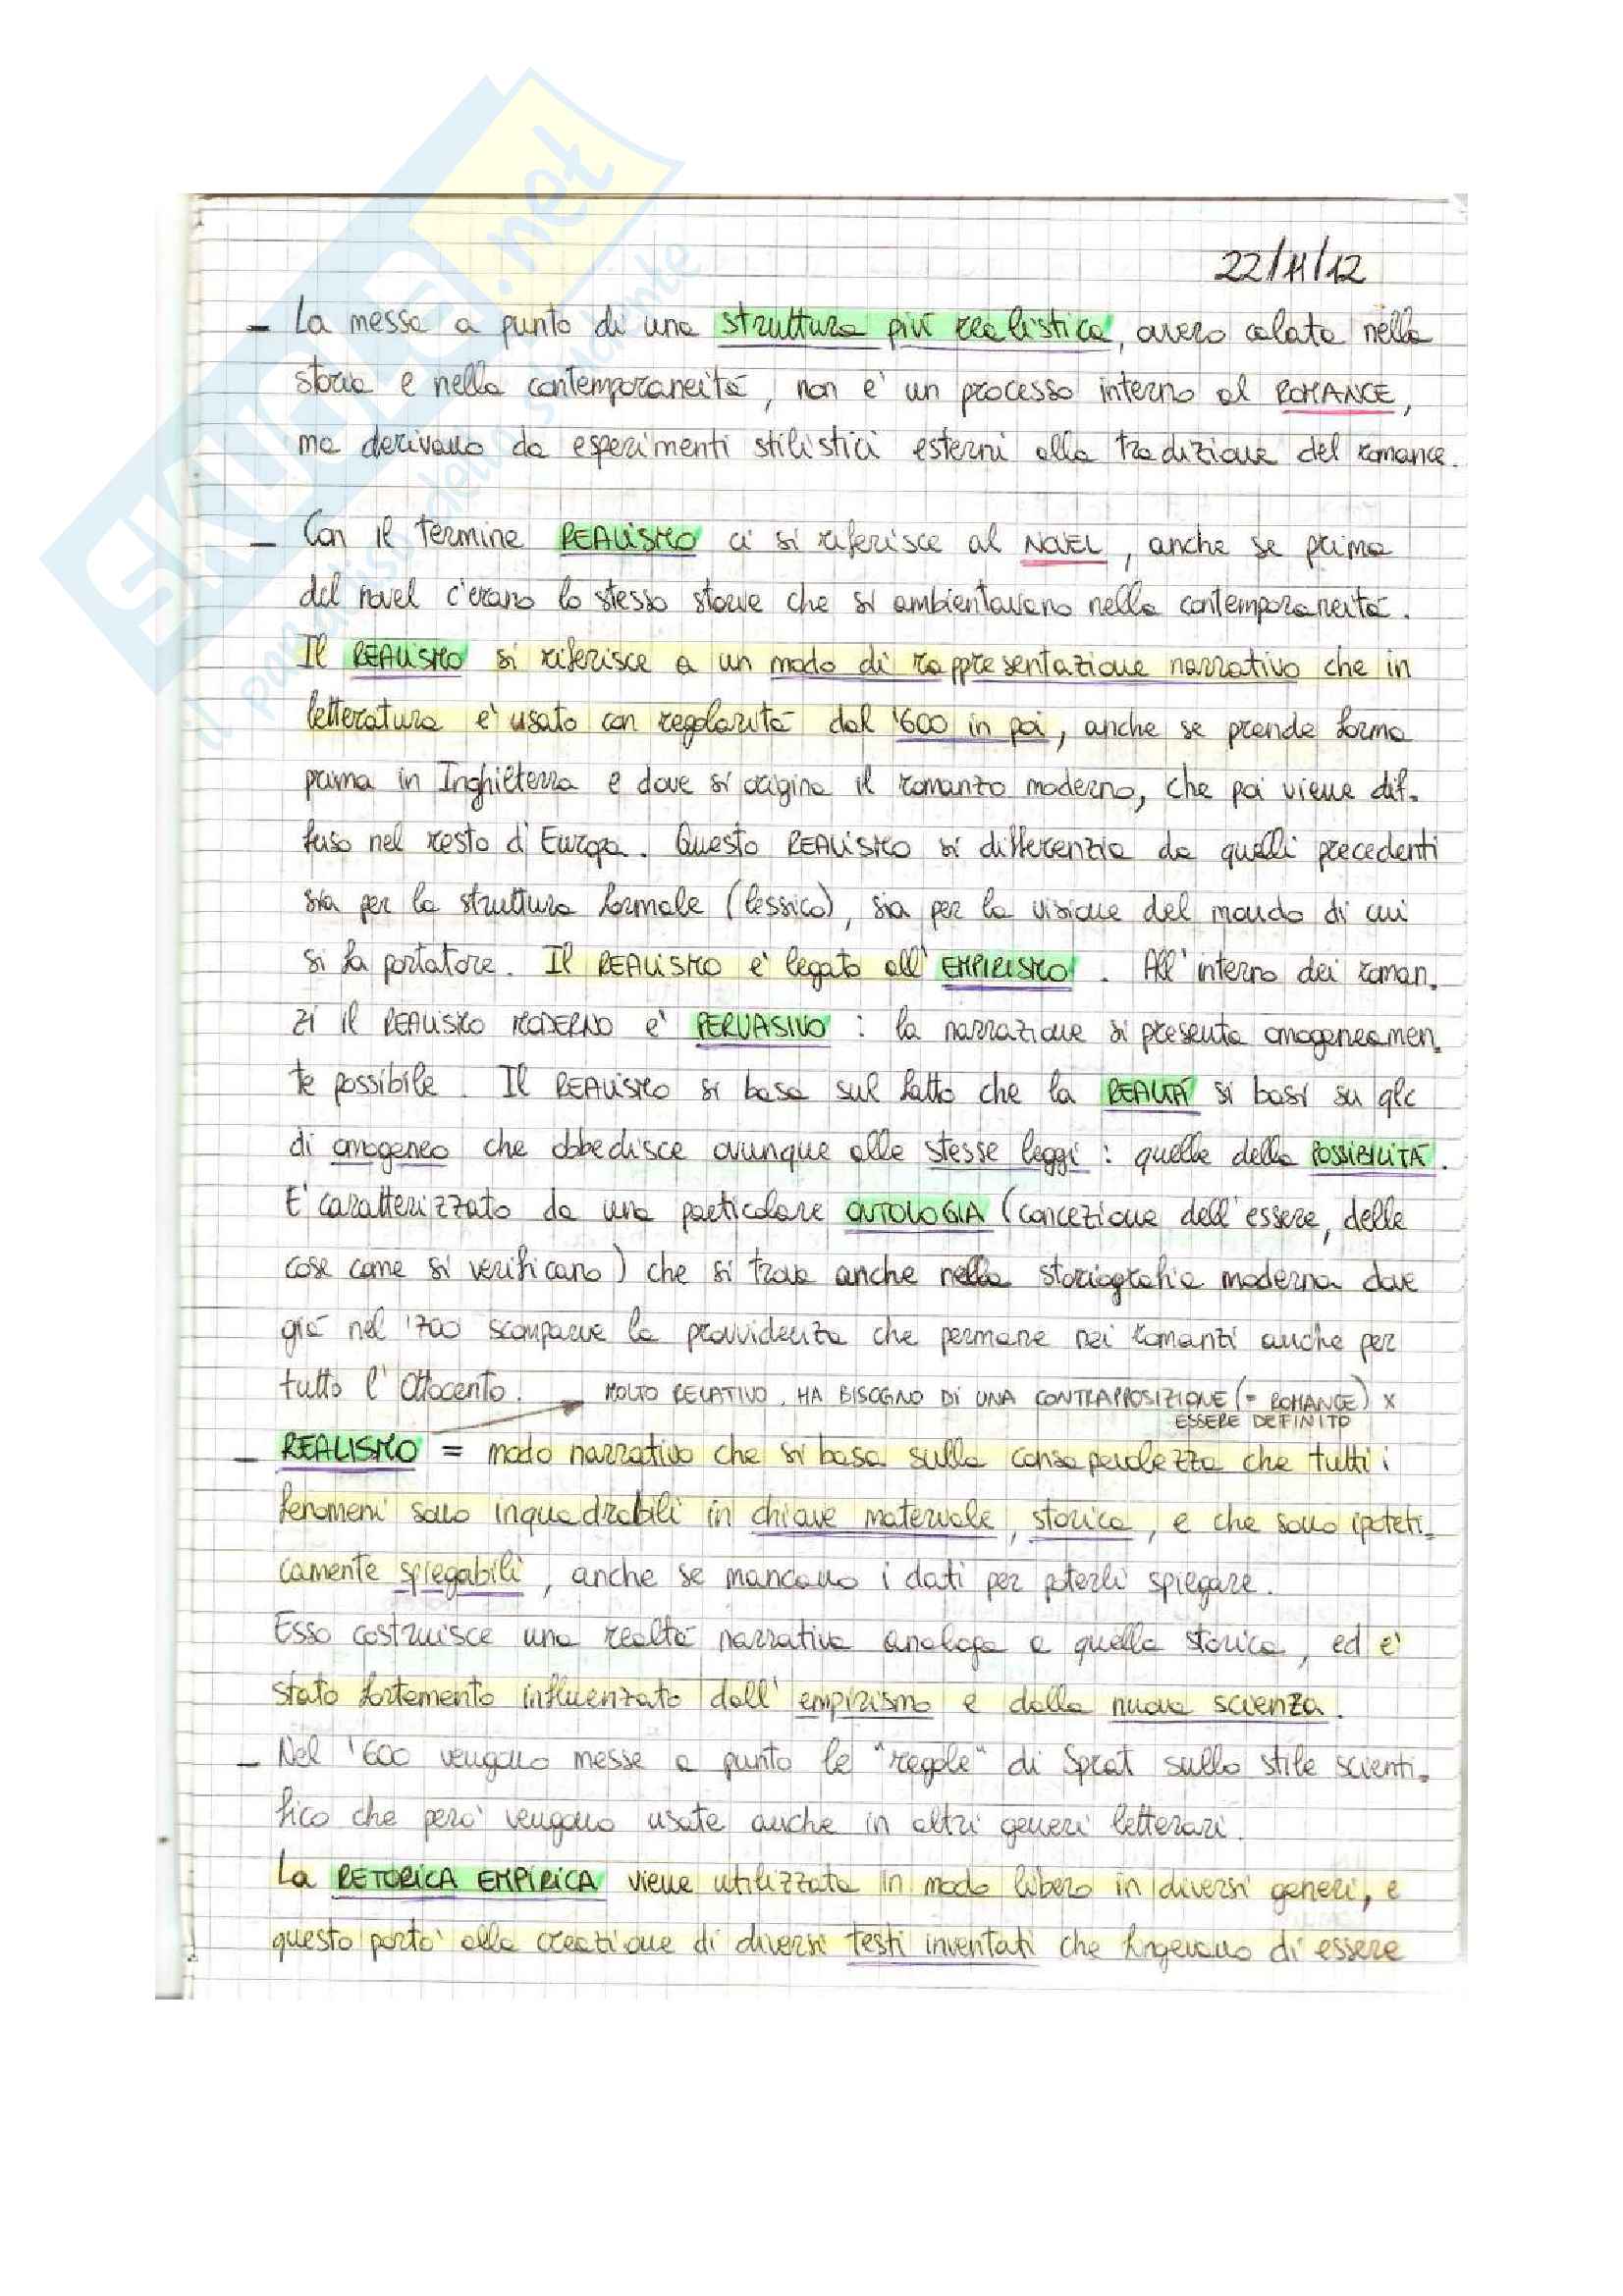 SKUOLA.net
il paradiso dello studente
22/11/12
- La messa a punto di una struttura più realistica, ovvero calata nella
storia e nella contemporaneità, non e' un processo interno al ROMANCE,
ma derivano da esperimenti stilistici esterni alla tradizione del romance.
- Con il termine REALISMO ci si riferisce al NOVEL, anche se prima
del novel c'erano lo stesso storie che si ambientavano nella contemporaneità.
Il REALISMO si riferisce a un modo di rappresentazione narrativo che in
letteratura e' usato con regolarità dal '600 in poi, anche se prende forma
prima in Inghilterra e dove si origina il romanzo moderno, che poi viene dif-
fuso nel resto d'Europa. Questo REALISMO si differenzia da quelli precedenti
sia per la struttura formale (lessico), sia per la visione del mondo di cui
si fa portatore. Il REALISMO e' legato all'EMPIRISMO. All'interno dei roman-
zi il REALISMO MODERNO e' PERVASIVO: la narrazione si presenta omogeneamen-
te possibile. Il REALISMO si basa sul fatto che la REALTÀ si basi su qlc
di omogeneo che obbedisce ovunque alle stesse leggi: quelle della POSSIBILITÀ.
E' caratterizzato da una particolare ONTOLOGIA (concezione dell'essere, delle
cose come si verificano) che si trova anche nella storiografia moderna dove
già nel '700 scompare la provvidenza che permane nei romanzi anche per
tutto l'Ottocento. → MOLTO RELATIVO, HA BISOGNO DI UNA CONTRAPPOSIZIONE (= ROMANCE) x
ESSERE DEFINITO
- REALISMO = modo narrativo che si basa sulla consapevolezza che tutti i
fenomeni sono inquadrabili in chiave materiale, storica, e che sono ipoteti-
camente spiegabili, anche se mancano i dati per poterli spiegare.
Esso costruisce una realtà narrativa analoga a quella storica, ed e'
stato fortemento influenzato dall'empirismo e dalla nuova scienza.
- Nel '600 vengono messe a punto le "regole" di Sprat sullo stile scienti-
fico che pero' vengono usate anche in altri generi letterari.
La RETORICA EMPIRICA viene utilizzata in modo libero in diversi generi, e
questo porto' alla creazione di diversi testi inventati che fingevano di essere